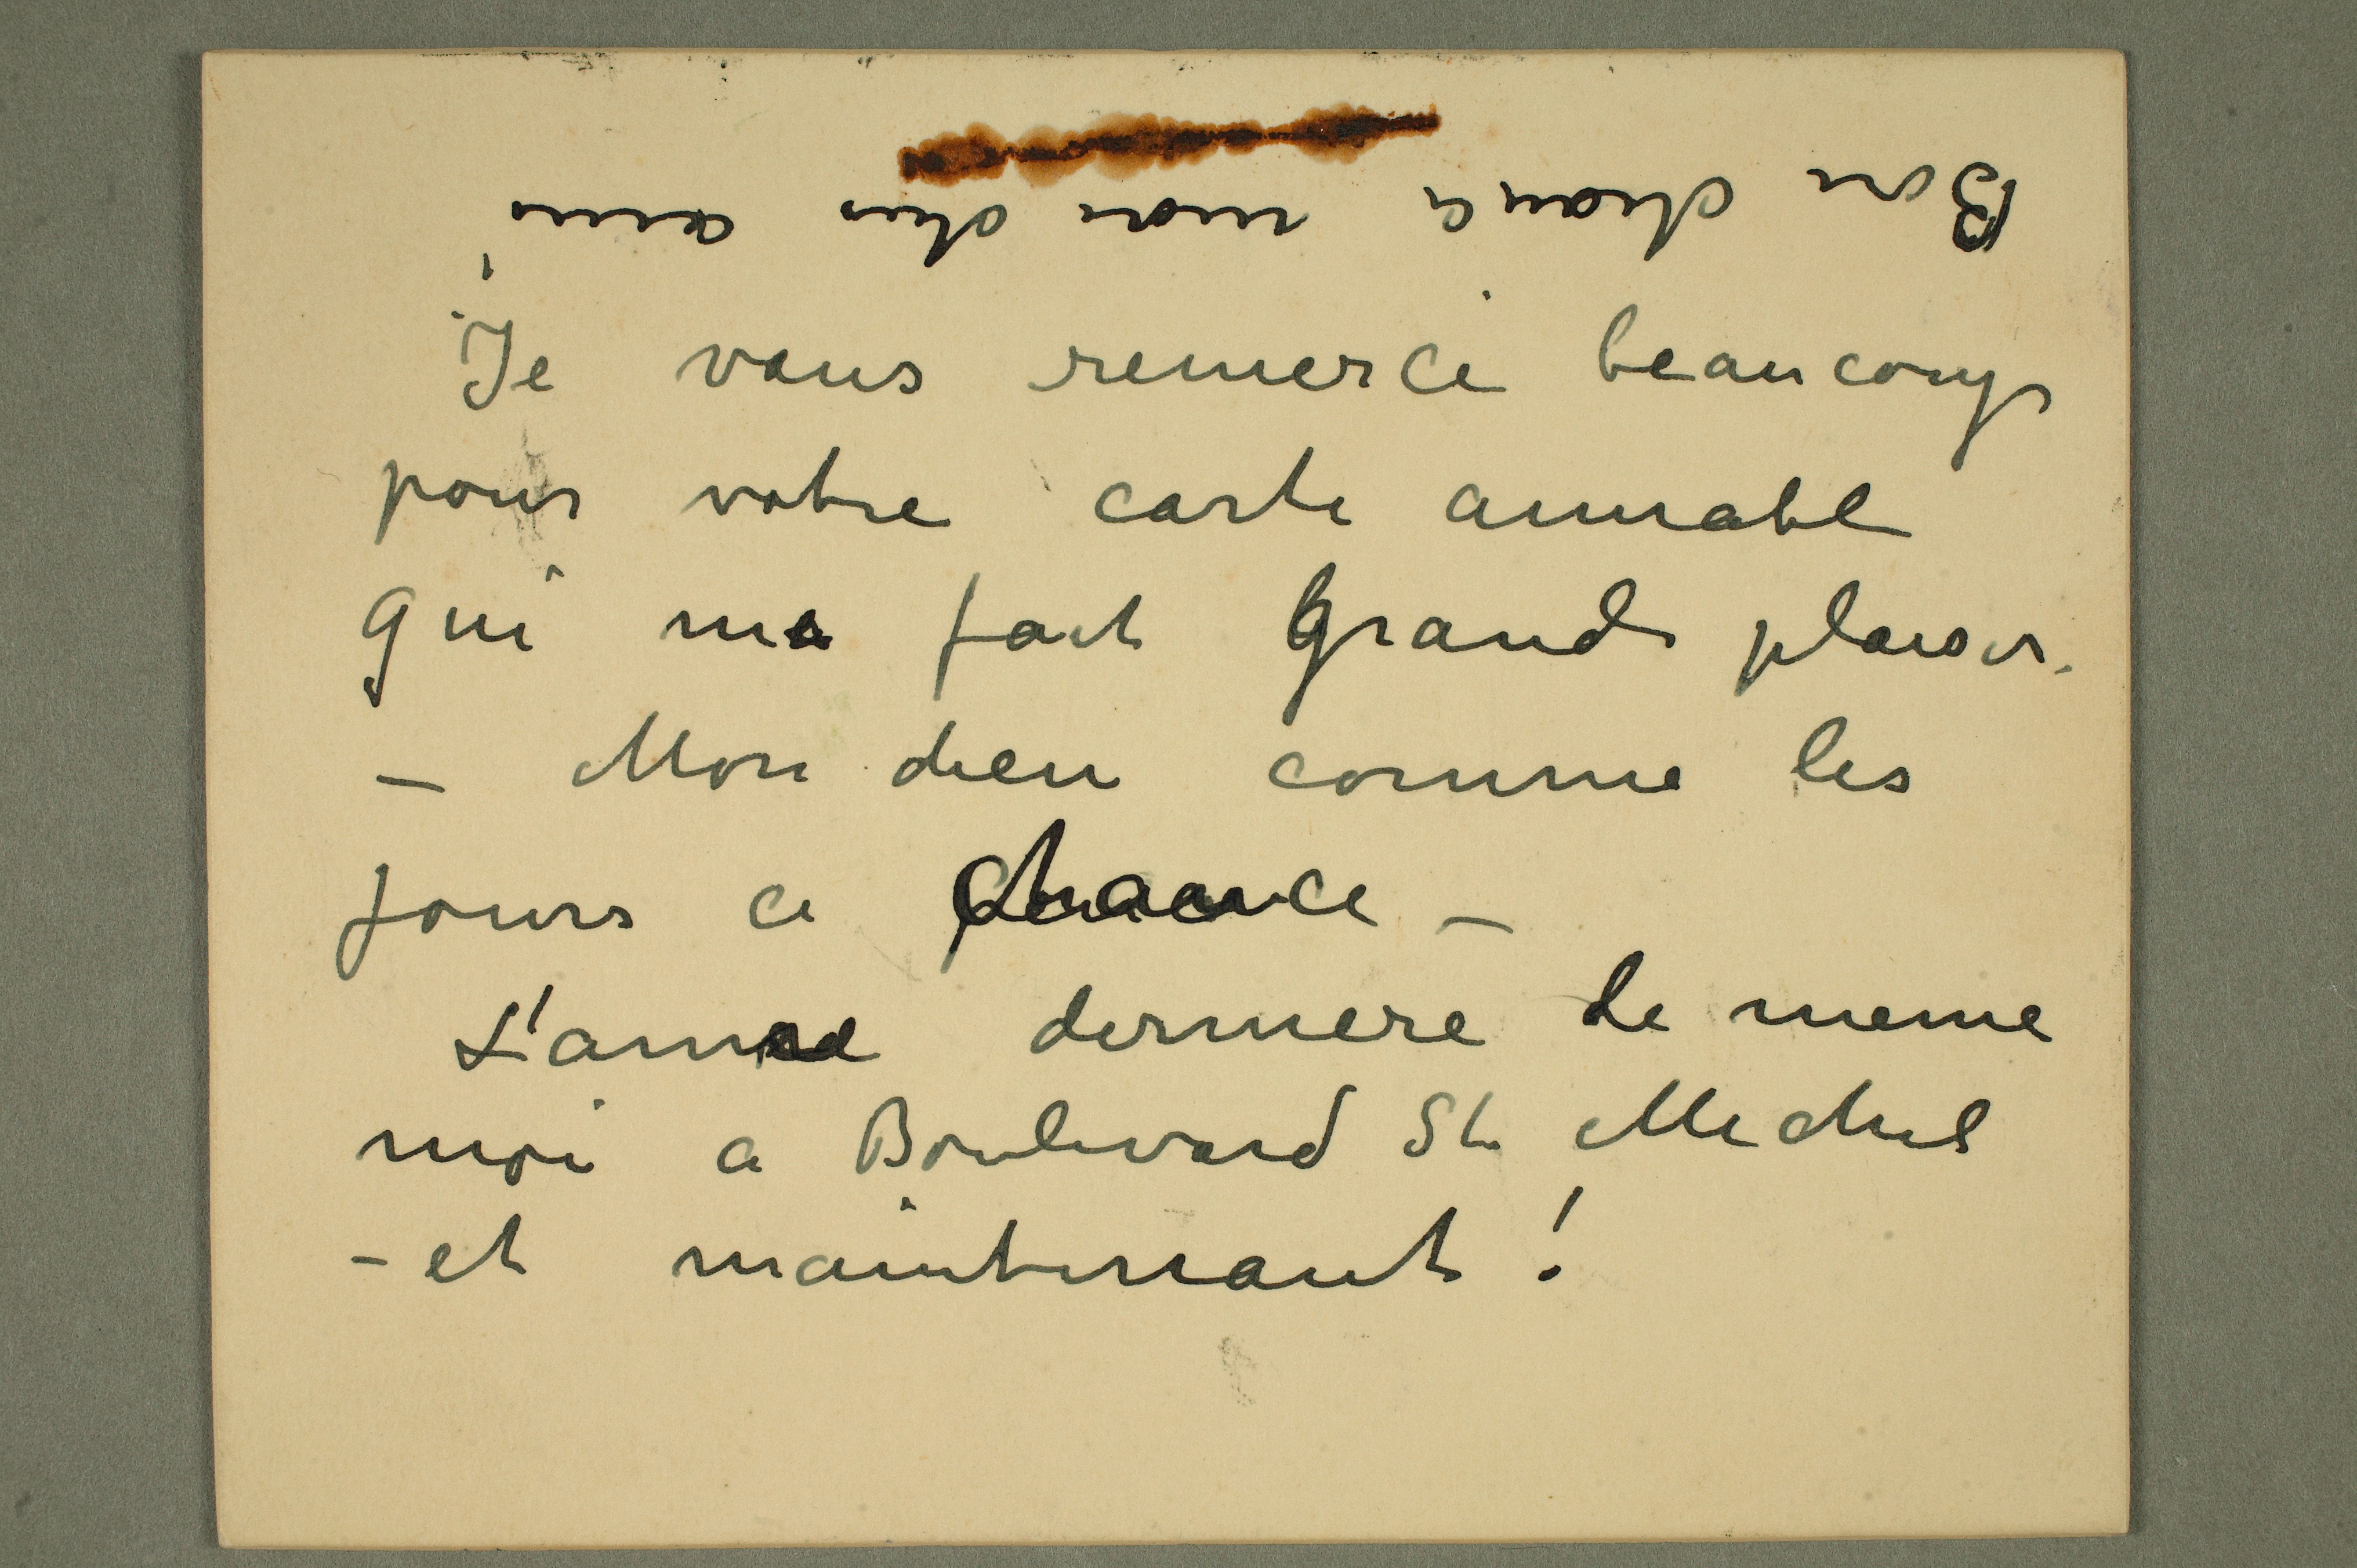 Bon chance mon cher ami!
Je vous remerce beaucoup
pour votre carte aimable
qui ma fait grand plaisir.
— Mon dieu comme les
jours ce chance —
L'anne derniere de meme
moi a Boulevard St Michel
- et maintenant!